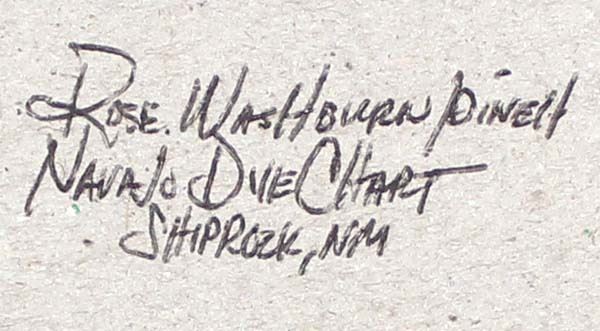 ROSE. WASHBURN/DINEH
NAVAJO DYE CHART
SHIPROCK, NM